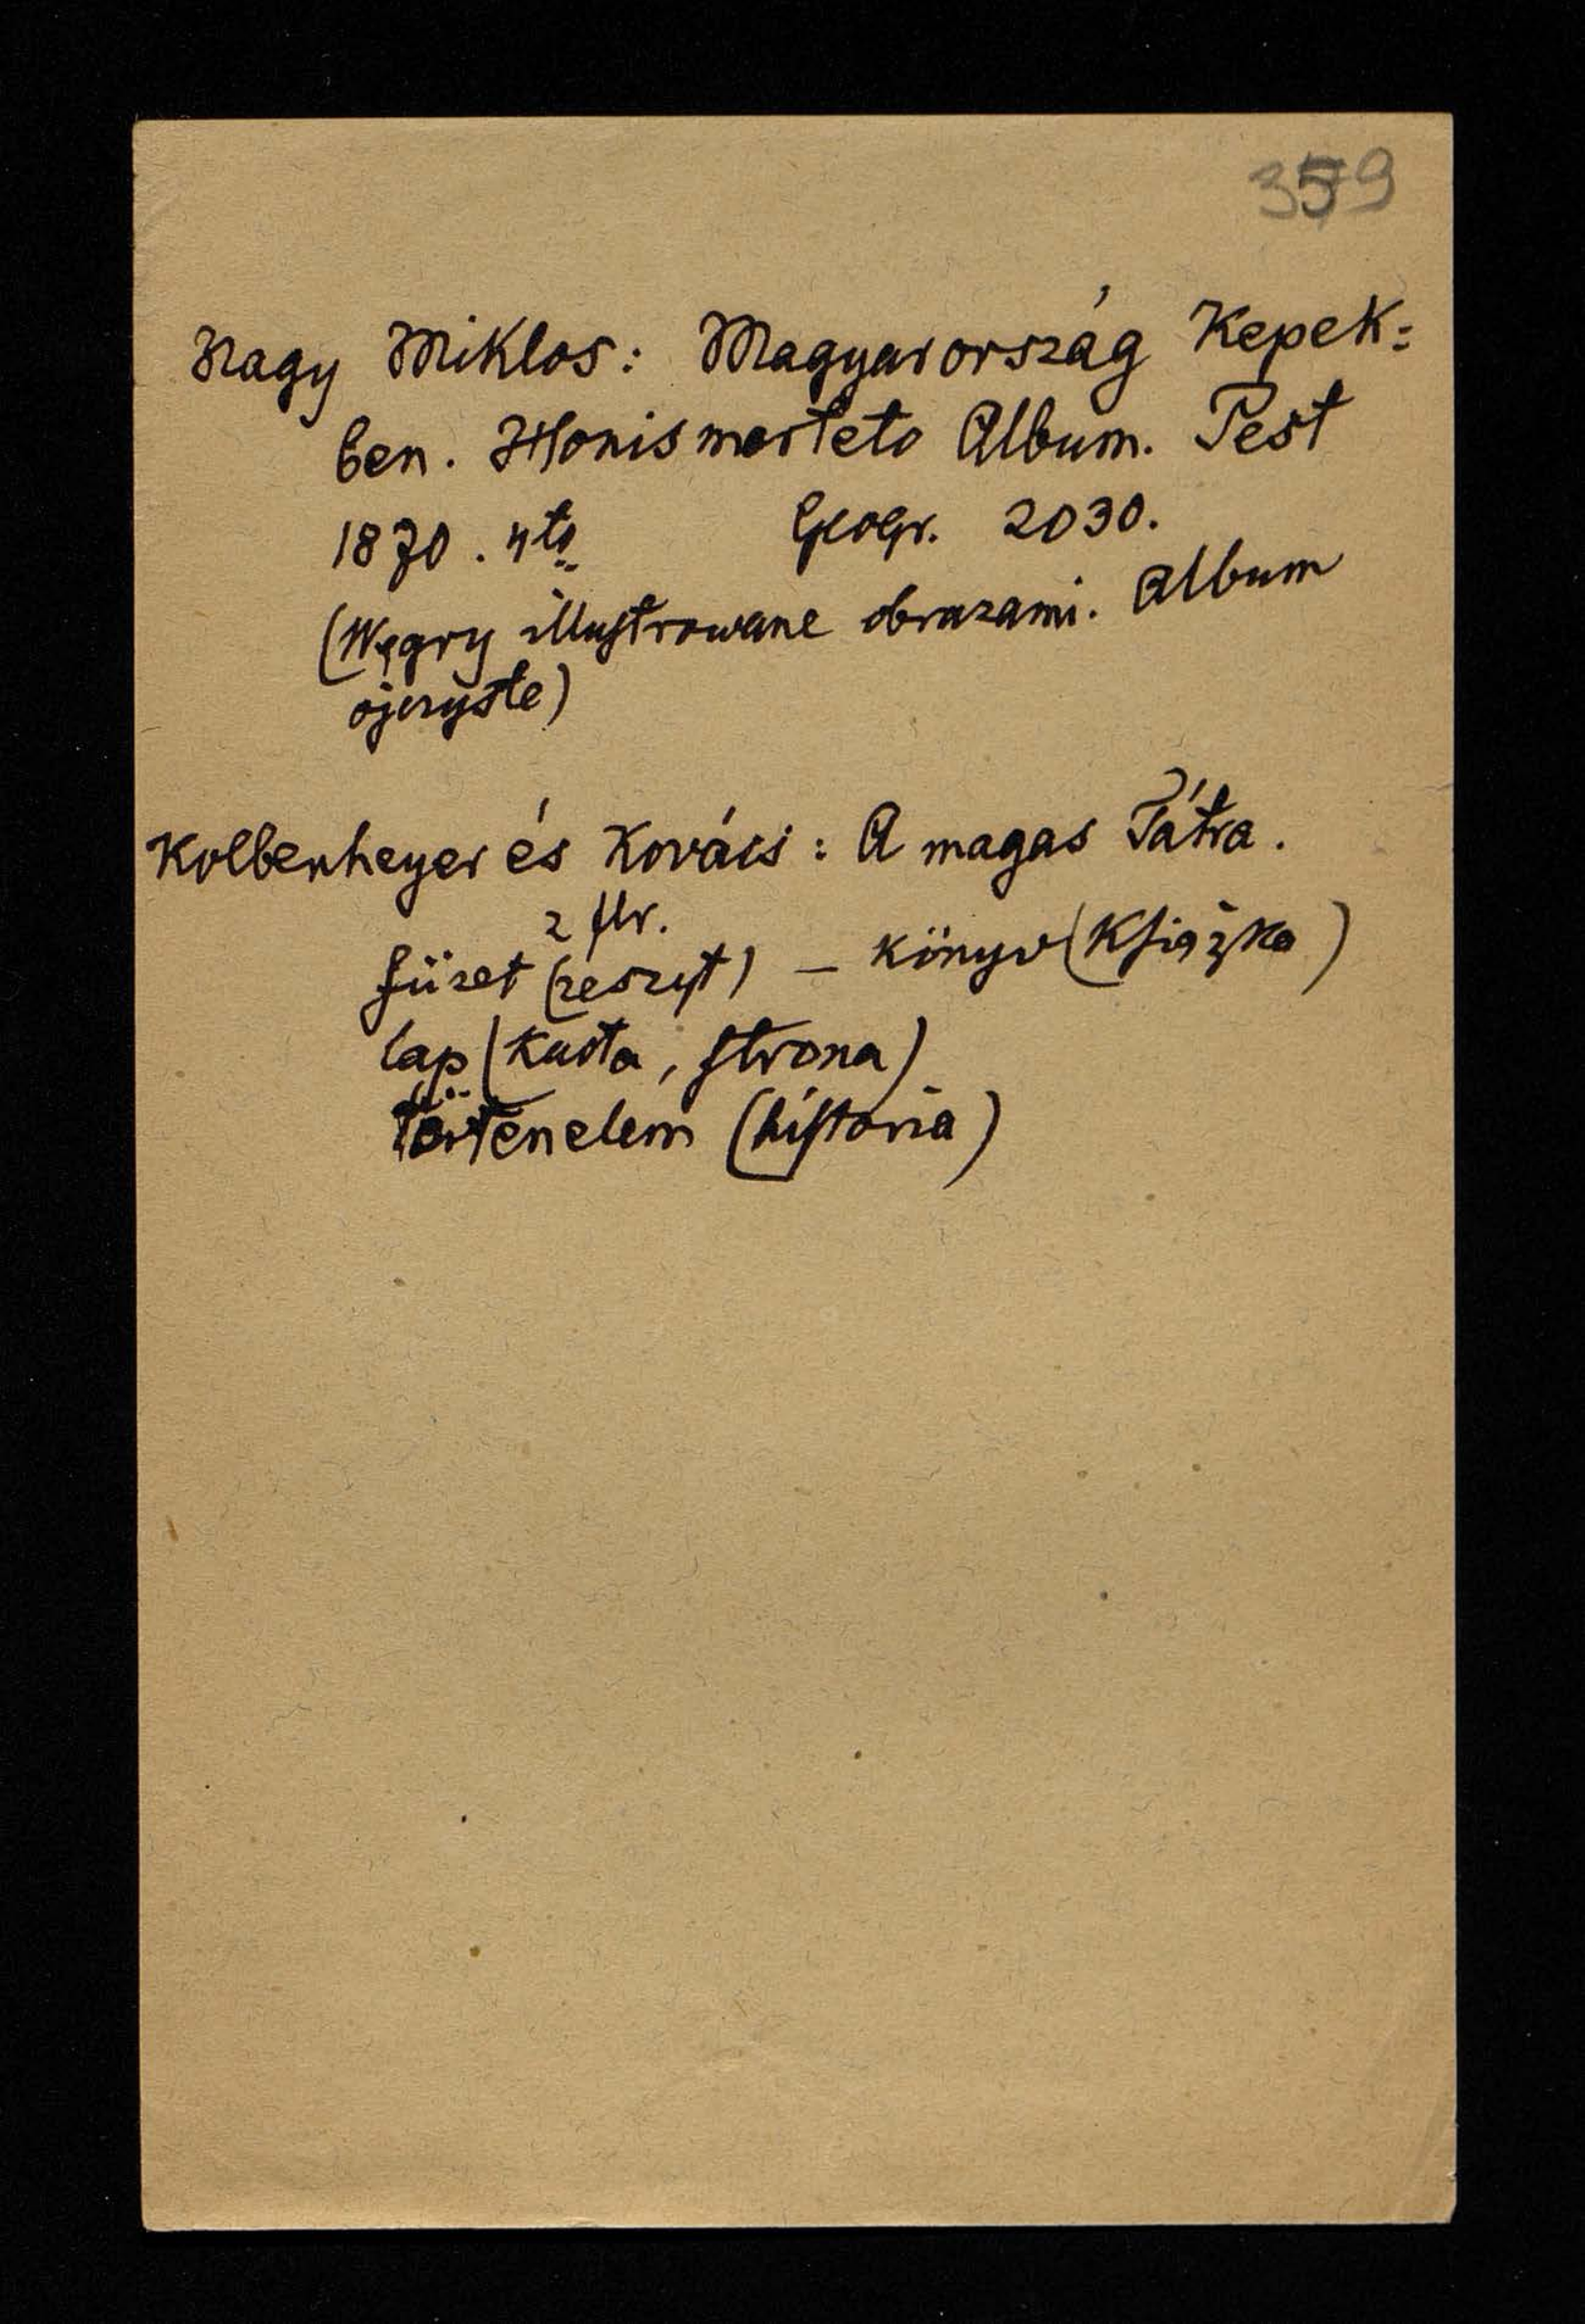 359
Nagy Miklos: Magyarország Kepek=
ben. Honismerteto Album. Pest
1870. 4to Geogr. 2030.
(Węgry illustrowane obrazami. Album
ojczyste)
Kolbenheyer és Kovács: A magas Tátra.
2 flr.
füzet (zeszyt) – könyv (Książka)
lap (Karta, strona)
történelem (historia)